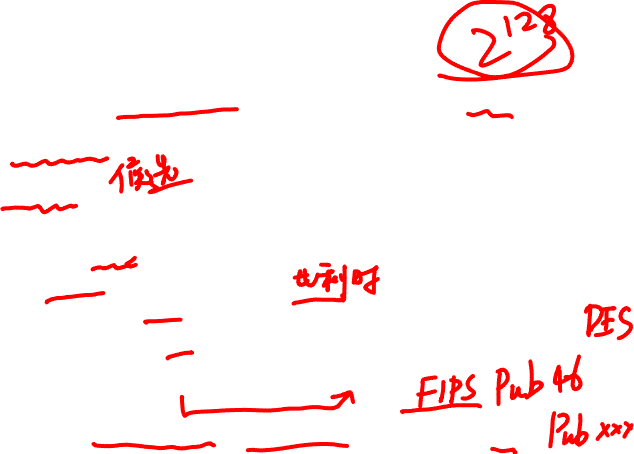 2^128
候选
比利时
DES
FIPS Pub 46
Pub xxx